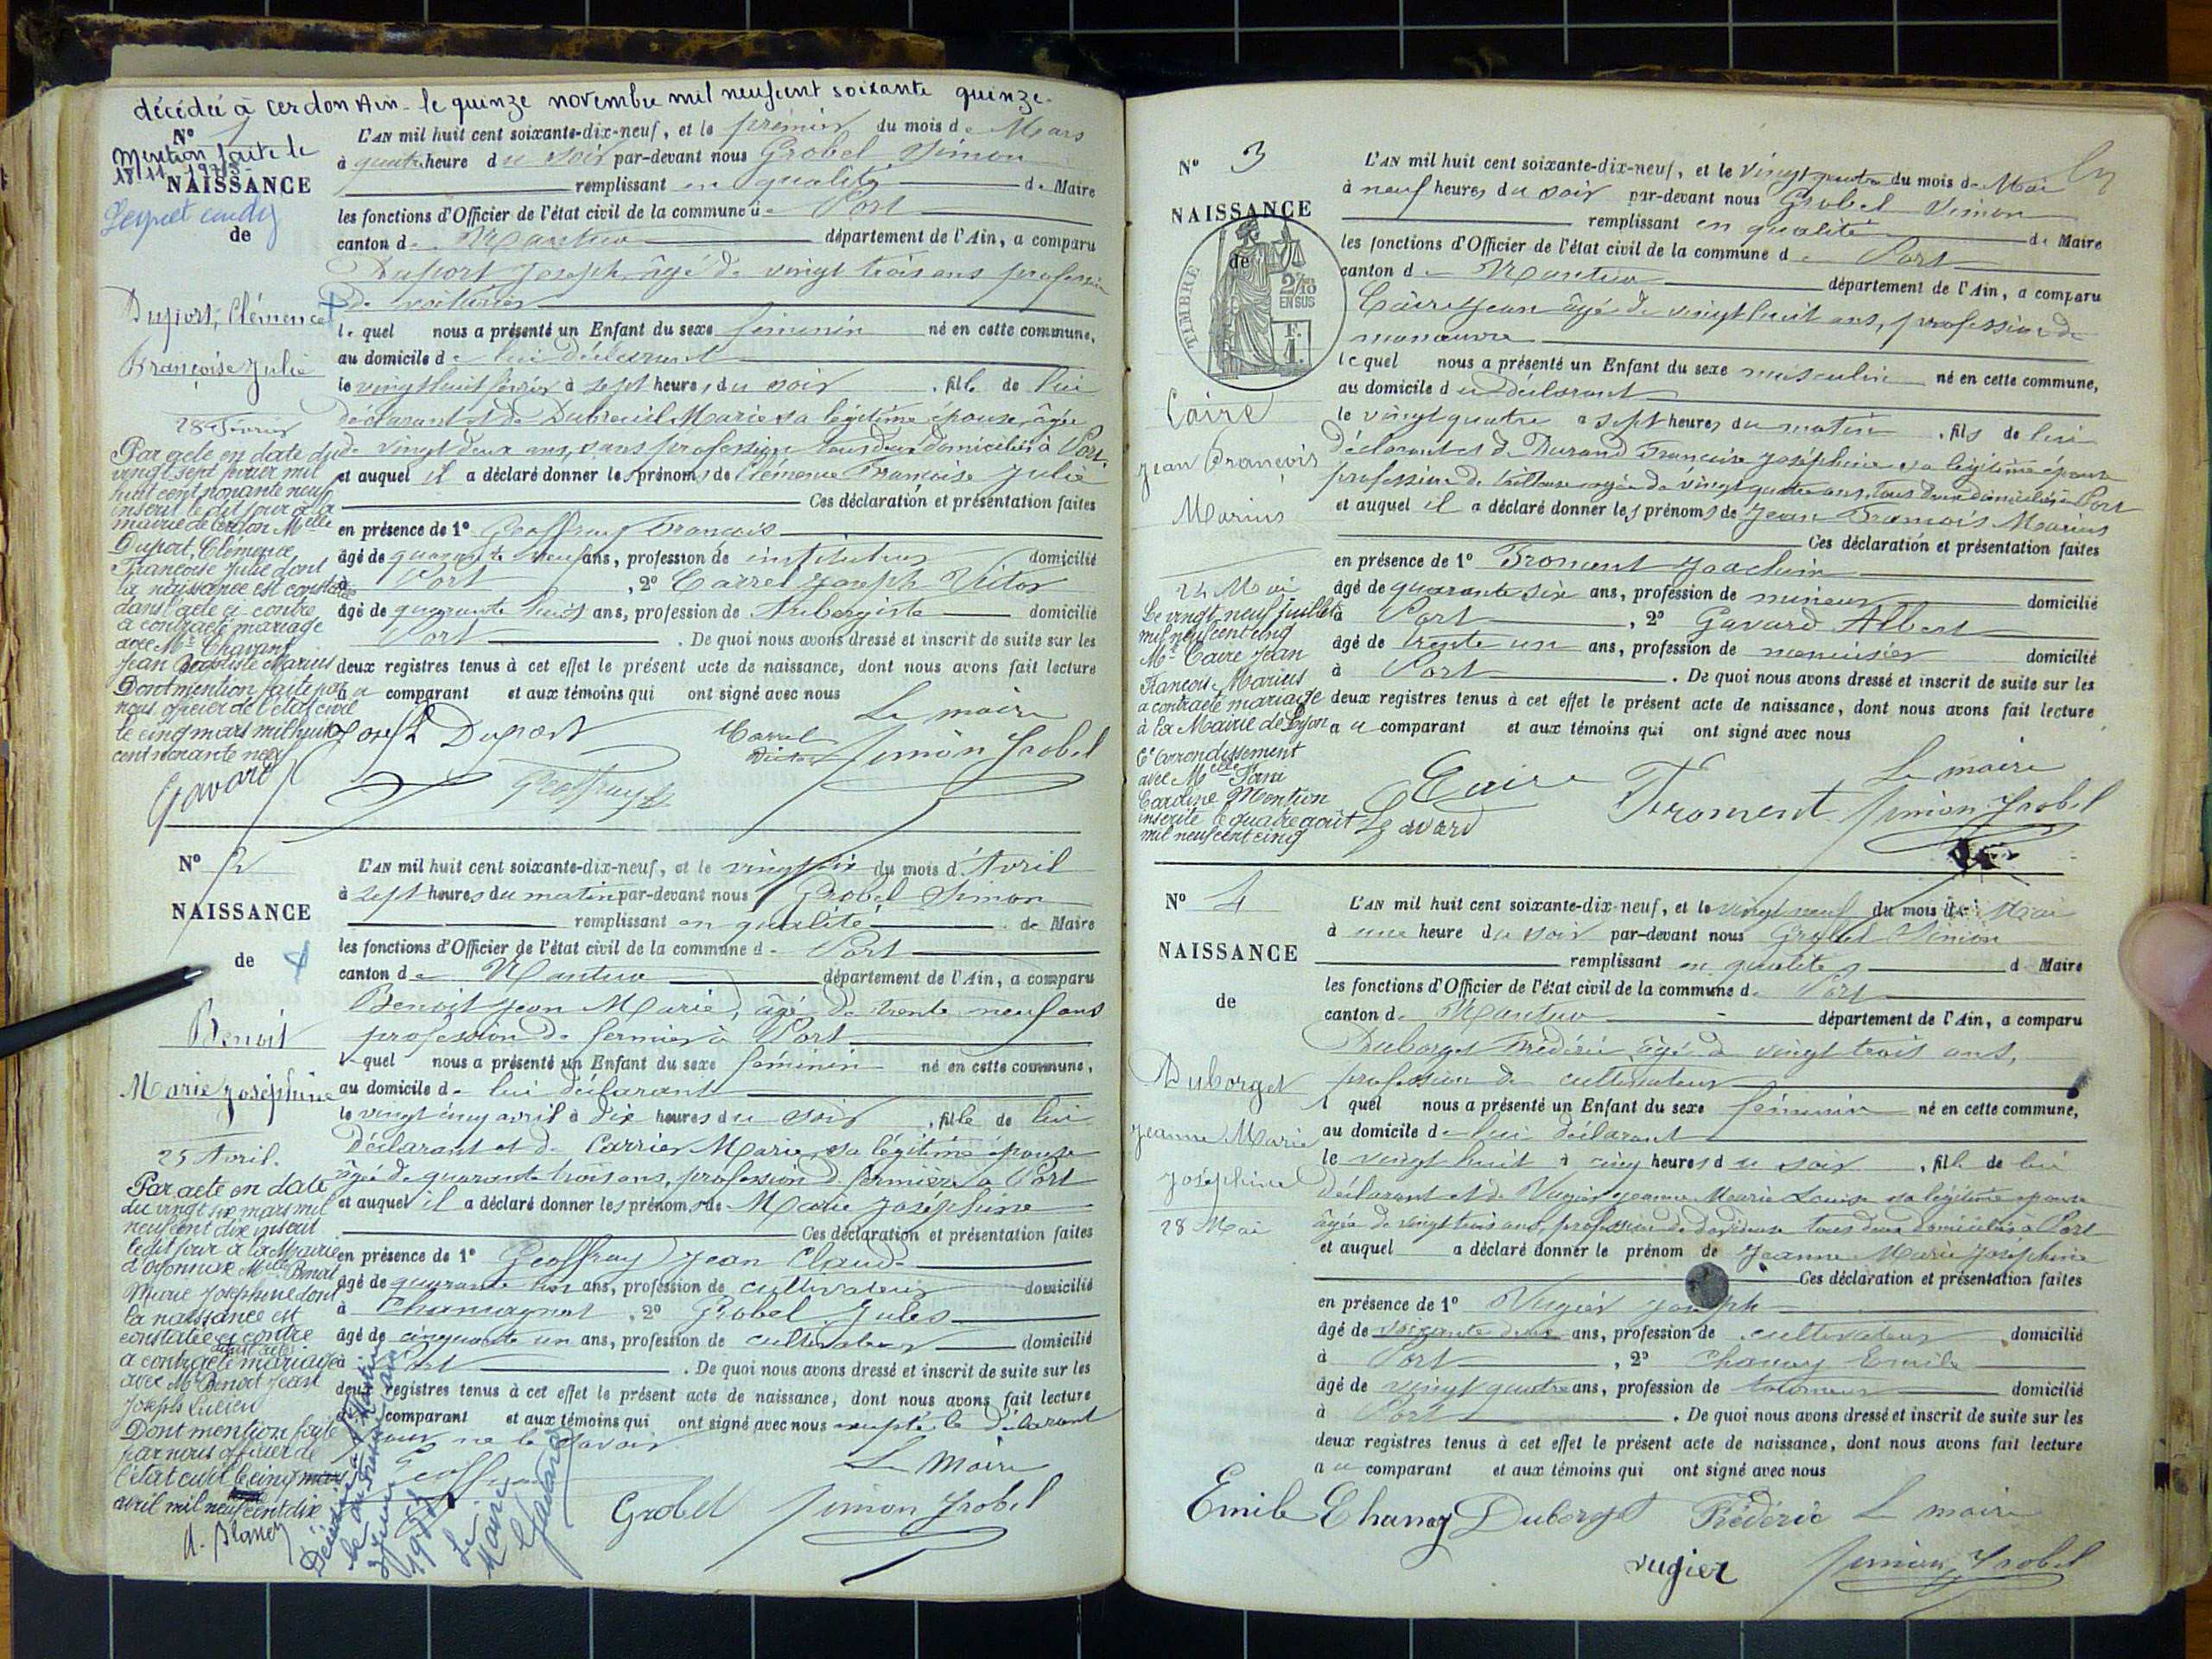 décédée à Cerdon Ain - le quinze novembre mil neuf cent soixante quinze.
N° 1
Mention faite le
NAISSANCE
de
Duport, Clémence
Françoise Julie
28 Février
Par acte en date du
vingt sept février mil
huit cent nonante neuf
inscrit le dit jour à la
mairie de Cerdon Melle
Duport, Clémence
Françoise Julie dont
la naissance est constatée
dans l'acte ci-contre
a contracté mariage
avec Mr Chavant
Jean Baptiste Marius
Dont mention faite par
nous officier de l'état civil
le cinq mars mil huit
cent nonante neuf
Gavard
L'AN mil huit cent soixante-dix-neuf, et le premier du mois de Mars
à quatre heure du soir par-devant nous Grobel Simon
remplissant en qualité de Maire
les fonctions d'Officier de l'état civil de la commune d Port
canton de Nantua département de l'Ain, a comparu
Duport Joseph, âgé de vingt trois ans profession
de voiturier
lequel nous a présenté un Enfant du sexe féminin né en cette commune,
au domicile de lui déclarant
le vingt huit février à sept heures du soir, fille de lui
déclarant et de Dubreuil Marie sa légitime épouse, âgée
de vingt deux ans, sans profession tous deux domiciliés à Port
et auquel il a déclaré donner les prénoms de Clémence Françoise Julie
Ces déclaration et présentation faites
en présence de 1° Geoffray François
âgé de quarante neuf ans, profession de instituteur domicilié
à Port, 2° Carrel Joseph Victor
âgé de quarante huit ans, profession de Aubergiste domicilié
Port. De quoi nous avons dressé et inscrit de suite sur les
deux registres tenus à cet effet le présent acte de naissance, dont nous avons fait lecture
au comparant et aux témoins qui ont signé avec nous
Le maire
Joseph Duport Carrel Victor Simon Grobel
Geoffray
N° 2
NAISSANCE
de
Benoit
Marie Joséphine
25 Avril.
Par acte en date
du vingt six mars mil
neuf cent dix inscrit
ledit jour à la Mairie
d'Oyonnax Melle Benoit
Marie Joséphine dont
la naissance est
constatée ci contre
a contracté mariage
avec Mr Benoit Jean
Joseph Lucien
Dont mention faite
par nous officier de
l'état civil le cinq mars
avril mil neuf cent dix
A. Blanc
L'AN mil huit cent soixante-dix-neuf, et le vingt six du mois d'Avril
à sept heures du matin par-devant nous Grobel Simon
remplissant en qualité de Maire
les fonctions d'Officier de l'état civil de la commune d Port
canton de Nantua département de l'Ain, a comparu
Benoit Jean Marie, âgé de trente neuf ans
profession de fermier à Port
lequel nous a présenté un Enfant du sexe féminin né en cette commune,
au domicile de lui déclarant
le vingt cinq avril à dix heures du soir, fille de lui
déclarant et de Carrier Marie, sa légitime épouse
âgée de quarante trois ans, profession de fermière à Port
et auquel il a déclaré donner les prénoms de Marie Joséphine
Ces déclaration et présentation faites
en présence de 1° Geoffray Jean Claude
âgé de quarante ans, profession de cultivateur domicilié
à Chamagnat, 2° Grobel Jules
âgé de cinquante un ans, profession de cultivateur domicilié
à Port. De quoi nous avons dressé et inscrit de suite sur les
deux registres tenus à cet effet le présent acte de naissance, dont nous avons fait lecture
comparant et aux témoins qui ont signé avec nous excepté le déclarant
pour ne le savoir
Le Maire
Geoffray
Grobel Simon Grobel
Le Maire
N° 3
NAISSANCE
de
TIMBRE
2/10 EN SUS
F. 1.
Caire
Jean François
Marius
24 Mai
Le vingt neuf juillet
mil neuf cent cinq
Mr Caire Jean
François Marius
a contracté mariage
à la Mairie de Lyon
6e Arrondissement
avec Melle
Caroline Mention
inscrite le quatre août
mil neuf cent cinq
L'AN mil huit cent soixante-dix-neuf, et le vingt quatre du mois de Mai
à neuf heures du soir par-devant nous Grobel Simon
remplissant en qualité de Maire
les fonctions d'Officier de l'état civil de la commune de Port
canton de Nantua département de l'Ain, a comparu
Caire Jean âgé de vingt huit ans, profession de
manœuvre
lequel nous a présenté un Enfant du sexe masculin né en cette commune,
au domicile du déclarant
le vingt quatre à sept heures du matin, fils de lui
déclarant et de Durand Françoise Joséphine sa légitime épouse
profession de tailleuse agée de vingt quatre ans, tous deux domiciliés à Port
et auquel il a déclaré donner les prénoms de Jean François Marius
Ces déclaration et présentation faites
en présence de 1° Froment Joachim
âgé de quarante six ans, profession de mineur domicilié
à Port, 2° Gavard Albert
âgé de trente un ans, profession de menuisier domicilié
à Port. De quoi nous avons dressé et inscrit de suite sur les
deux registres tenus à cet effet le présent acte de naissance, dont nous avons fait lecture
au comparant et aux témoins qui ont signé avec nous
Le maire
Caire Froment Simon Grobel
Gavard
N° 4
NAISSANCE
de
Duborget
Jeanne Marie
Joséphine
28 Mai
L'AN mil huit cent soixante-dix-neuf, et le vingt neuf du mois de Mai
à une heure du soir par-devant nous Grobel Simon
remplissant en qualité de Maire
les fonctions d'Officier de l'état civil de la commune de Port
canton de Nantua département de l'Ain, a comparu
Duborget Frédéric, âgé de vingt trois ans,
profession de cultivateur
l quel nous a présenté un Enfant du sexe féminin né en cette commune,
au domicile de lui déclarant
le vingt huit à cinq heures du soir, fille de lui
déclarant et de Vugier Jeanne Marie Louise sa légitime épouse
âgée de vingt trois ans, profession de dévideuse tous deux domiciliés à Port
et auquel a déclaré donner le prénom de Jeanne Marie Joséphine
Ces déclaration et présentation faites
en présence de 1° Vugier Joseph
âgé de soixante deux ans, profession de cultivateur domicilié
à Port, 2° Chanay Emile
âgé de vingt quatre ans, profession de tourneur domicilié
à Port. De quoi nous avons dressé et inscrit de suite sur les
deux registres tenus à cet effet le présent acte de naissance, dont nous avons fait lecture
au comparant et aux témoins qui ont signé avec nous
Emile Chanay Duborget Frédéric Le maire
vugier Simon Grobel